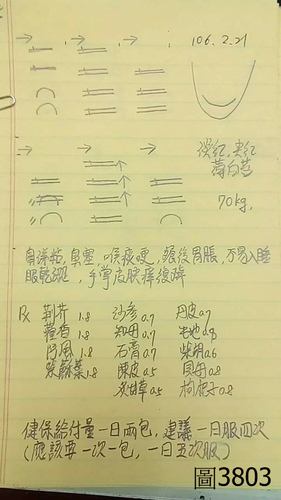 106.2.21
淡紅,尖紅
薄白苔
70kg.
鼻涕粘,鼻塞,喉痰哽,餐後胃脹,不易入睡
眼乾澀,手掌皮膚癢復降
Rx 荊芥 1.8 沙參 0.7 丹皮 0.7
藿香 1.8 知母 0.7 生地 0.8
防風 1.8 石膏 0.7 柴胡 0.6
紫蘇葉 1.8 陳皮 0.5 貝母 0.8
炙甘草 0.5 枸杞子 0.8
健保給付量一日兩包,建議一日服四次
(應該要一次一包,一日五次服)
圖3803